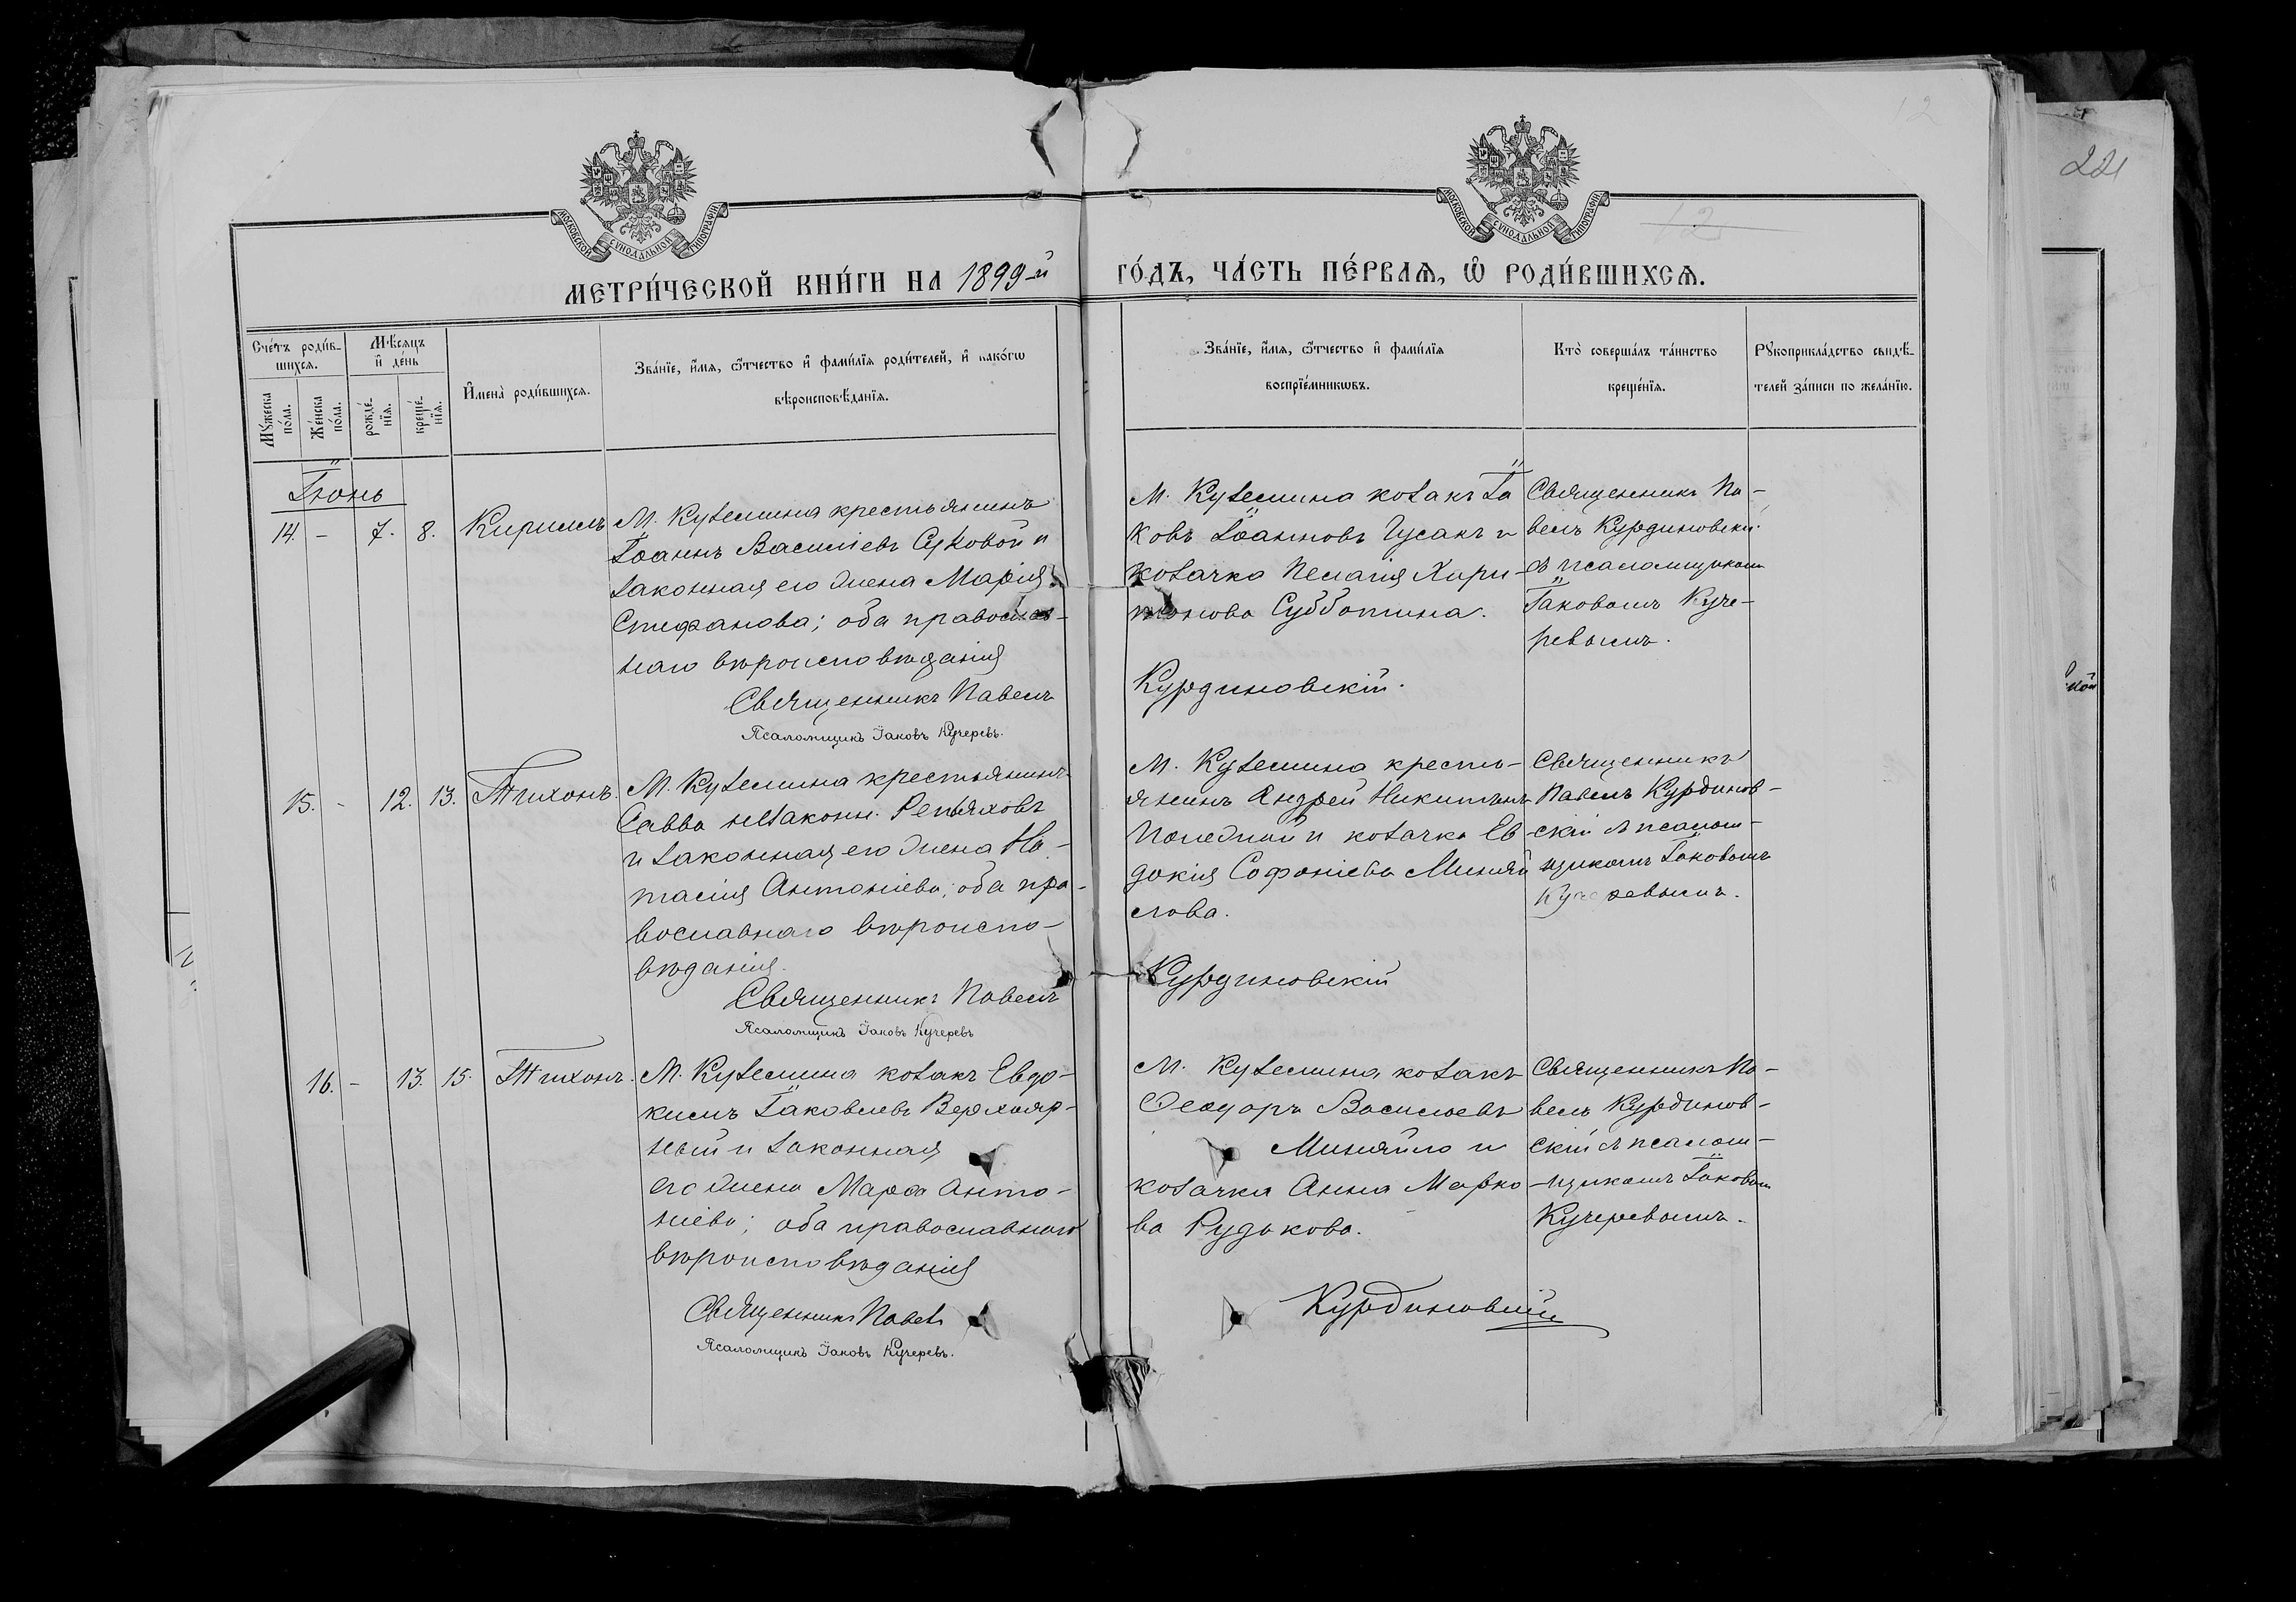 12
221
МОСКОВСКОЙ СУНОДАЛЬНОЙ ТИПОГРАФІИ
МОСКОВСКОЙ СУНОДАЛЬНОЙ ТИПОГРАФІИ
12
МЕТРИ́ЧЕСКОЙ КНИ́ГИ НА 1899-й ГО́ДЪ, ЧА́СТЬ ПЕ́РВАѦ, Ѡ РОДИ́ВШИХСѦ.
Сче́тъ роди́в-
шихсѧ.
Мѣ́сѧцъ
и҆ де́нь
Мꙋ́жеска
по́ла.
Же́нска
по́ла.
рожде́-
нїѧ.
креще́-
нїѧ.
И҆мена̀ роди́вшихсѧ.
Зва́нїе, и҆́мѧ, ѻ҆́тчество и҆ фами́лїѧ роди́телей, и҆ како́гѡ
вѣроисповѣ́данїѧ.
Зва́нїе, и҆́мѧ, ѻ҆́тчество и҆ фами́лїѧ
воспрїе́мникѡвъ.
Кто̀ соверша́лъ та́инство
креще́нїѧ.
Рꙋкоприкла́дство свидѣ́-
телей за́писи по жела́нїю.
Іюнь
14. - 7. 8. Кириллъ
М. Куземина крестьянинъ
Іоаннъ Василіевъ Суховой и
законная его жена Марія
Стефанова; оба православ-
наго вѣроисповѣданія
Священникъ Павелъ
Псаломщикъ Іаковъ Кучеревъ.
М. Куземина козакъ Іа
ковъ Іоанновъ Гусакъ и
козачка Пелагія Хари-
тонова Субботина.
Курдиновскій.
Священникъ Па-
велъ Курдиновскій
съ псаломщикомъ
Іаковомъ Куче-
ревымъ.
15. - 12. 13. Тихонъ.
М. Куземина крестьянинъ
Савва незаконн. Репьяховъ
и законная его жена На-
талія Антоніева; оба пра-
вославнаго вѣроиспо-
вѣданія.
Священникъ Павелъ
Псаломщикъ Іаковъ Кучеревъ
М. Куземина кресть-
янинъ Андрей Никитинъ
и козачка Ев
докія Софоніева Миняй
лова.
Курдиновскій
Священникъ
Павелъ Курдинов-
скій съ псалом-
щикомъ Іаковомъ
Кучеревымъ.
16. - 13. 15. Тихонъ.
М. Куземина козакъ Евдо-
кимъ Іаковлевъ Верхояр-
ный и законная
его жена Марѳа Анто-
ніева; оба православнаго
вѣроисповѣданія
Священникъ Павелъ
Псаломщикъ Іаковъ Кучеревъ.
М. Куземина козакъ
Ѳеодоръ Васильевъ
Миняйло и
козачка Анна Марко
ва Рудькова.
Курдиновскій
Священникъ Па-
велъ Курдинов-
скій съ псалом-
щикомъ Іаковомъ
Кучеревымъ.